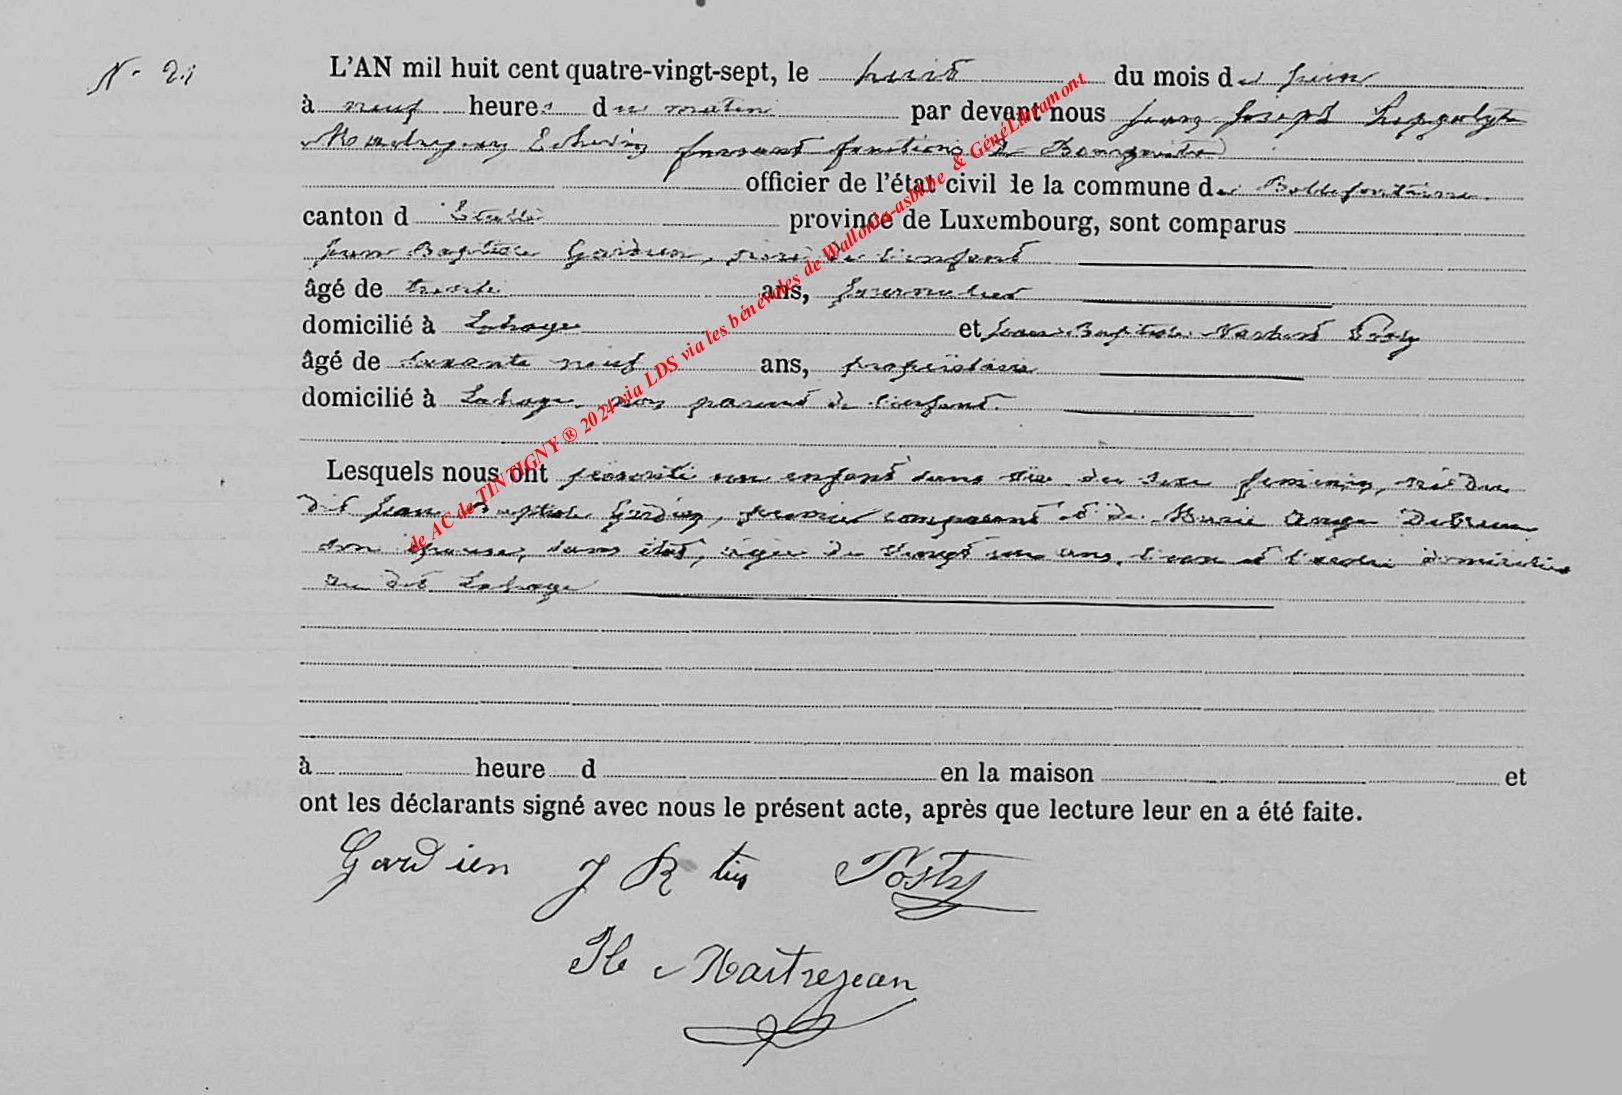 N° 21
L'AN mil huit cent quatre-vingt-sept, le huit du mois de Juin
à neuf heures du matin par devant nous Jean Joseph Hyppolyte
Maitrejean Echevin faisant fonctions de Bourgmestre
officier de l'état civil de la commune de Bellefontaine
canton d'Etalle province de Luxembourg, sont comparus
Jean Baptiste Gardien, père de l'enfant
âgé de trente ans, journalier
domicilié à Lahage et Jean Baptiste Norbert Posty
âgé de soixante neuf ans, propriétaire
domicilié à Lahage, non parent de l'enfant.
Lesquels nous ont présenté un enfant sans vie du sexe féminin, né du
dit Jean Baptiste Gardien, premier comparant et de Marie Ange
son épouse, sans état, âgée de vingt un ans, l'un et l'autre domiciliés
au dit Lahage
à heure d en la maison et
ont les déclarants signé avec nous le présent acte, après que lecture leur en a été faite.
Gardien J B Posty
H Maitrejean
de AC de TINTIGNY ® 2024 via LDS via les bénévoles de Wallonia-asbl.be & GénéLibramont